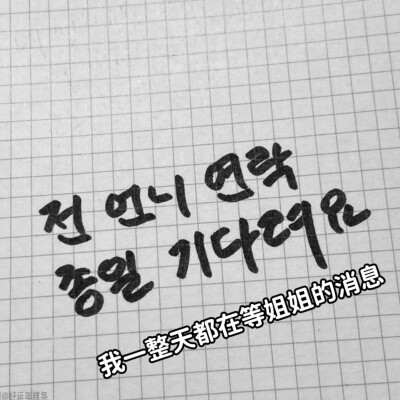 전 언니 연락
종일 기다려요
我一整天都在等姐姐的消息